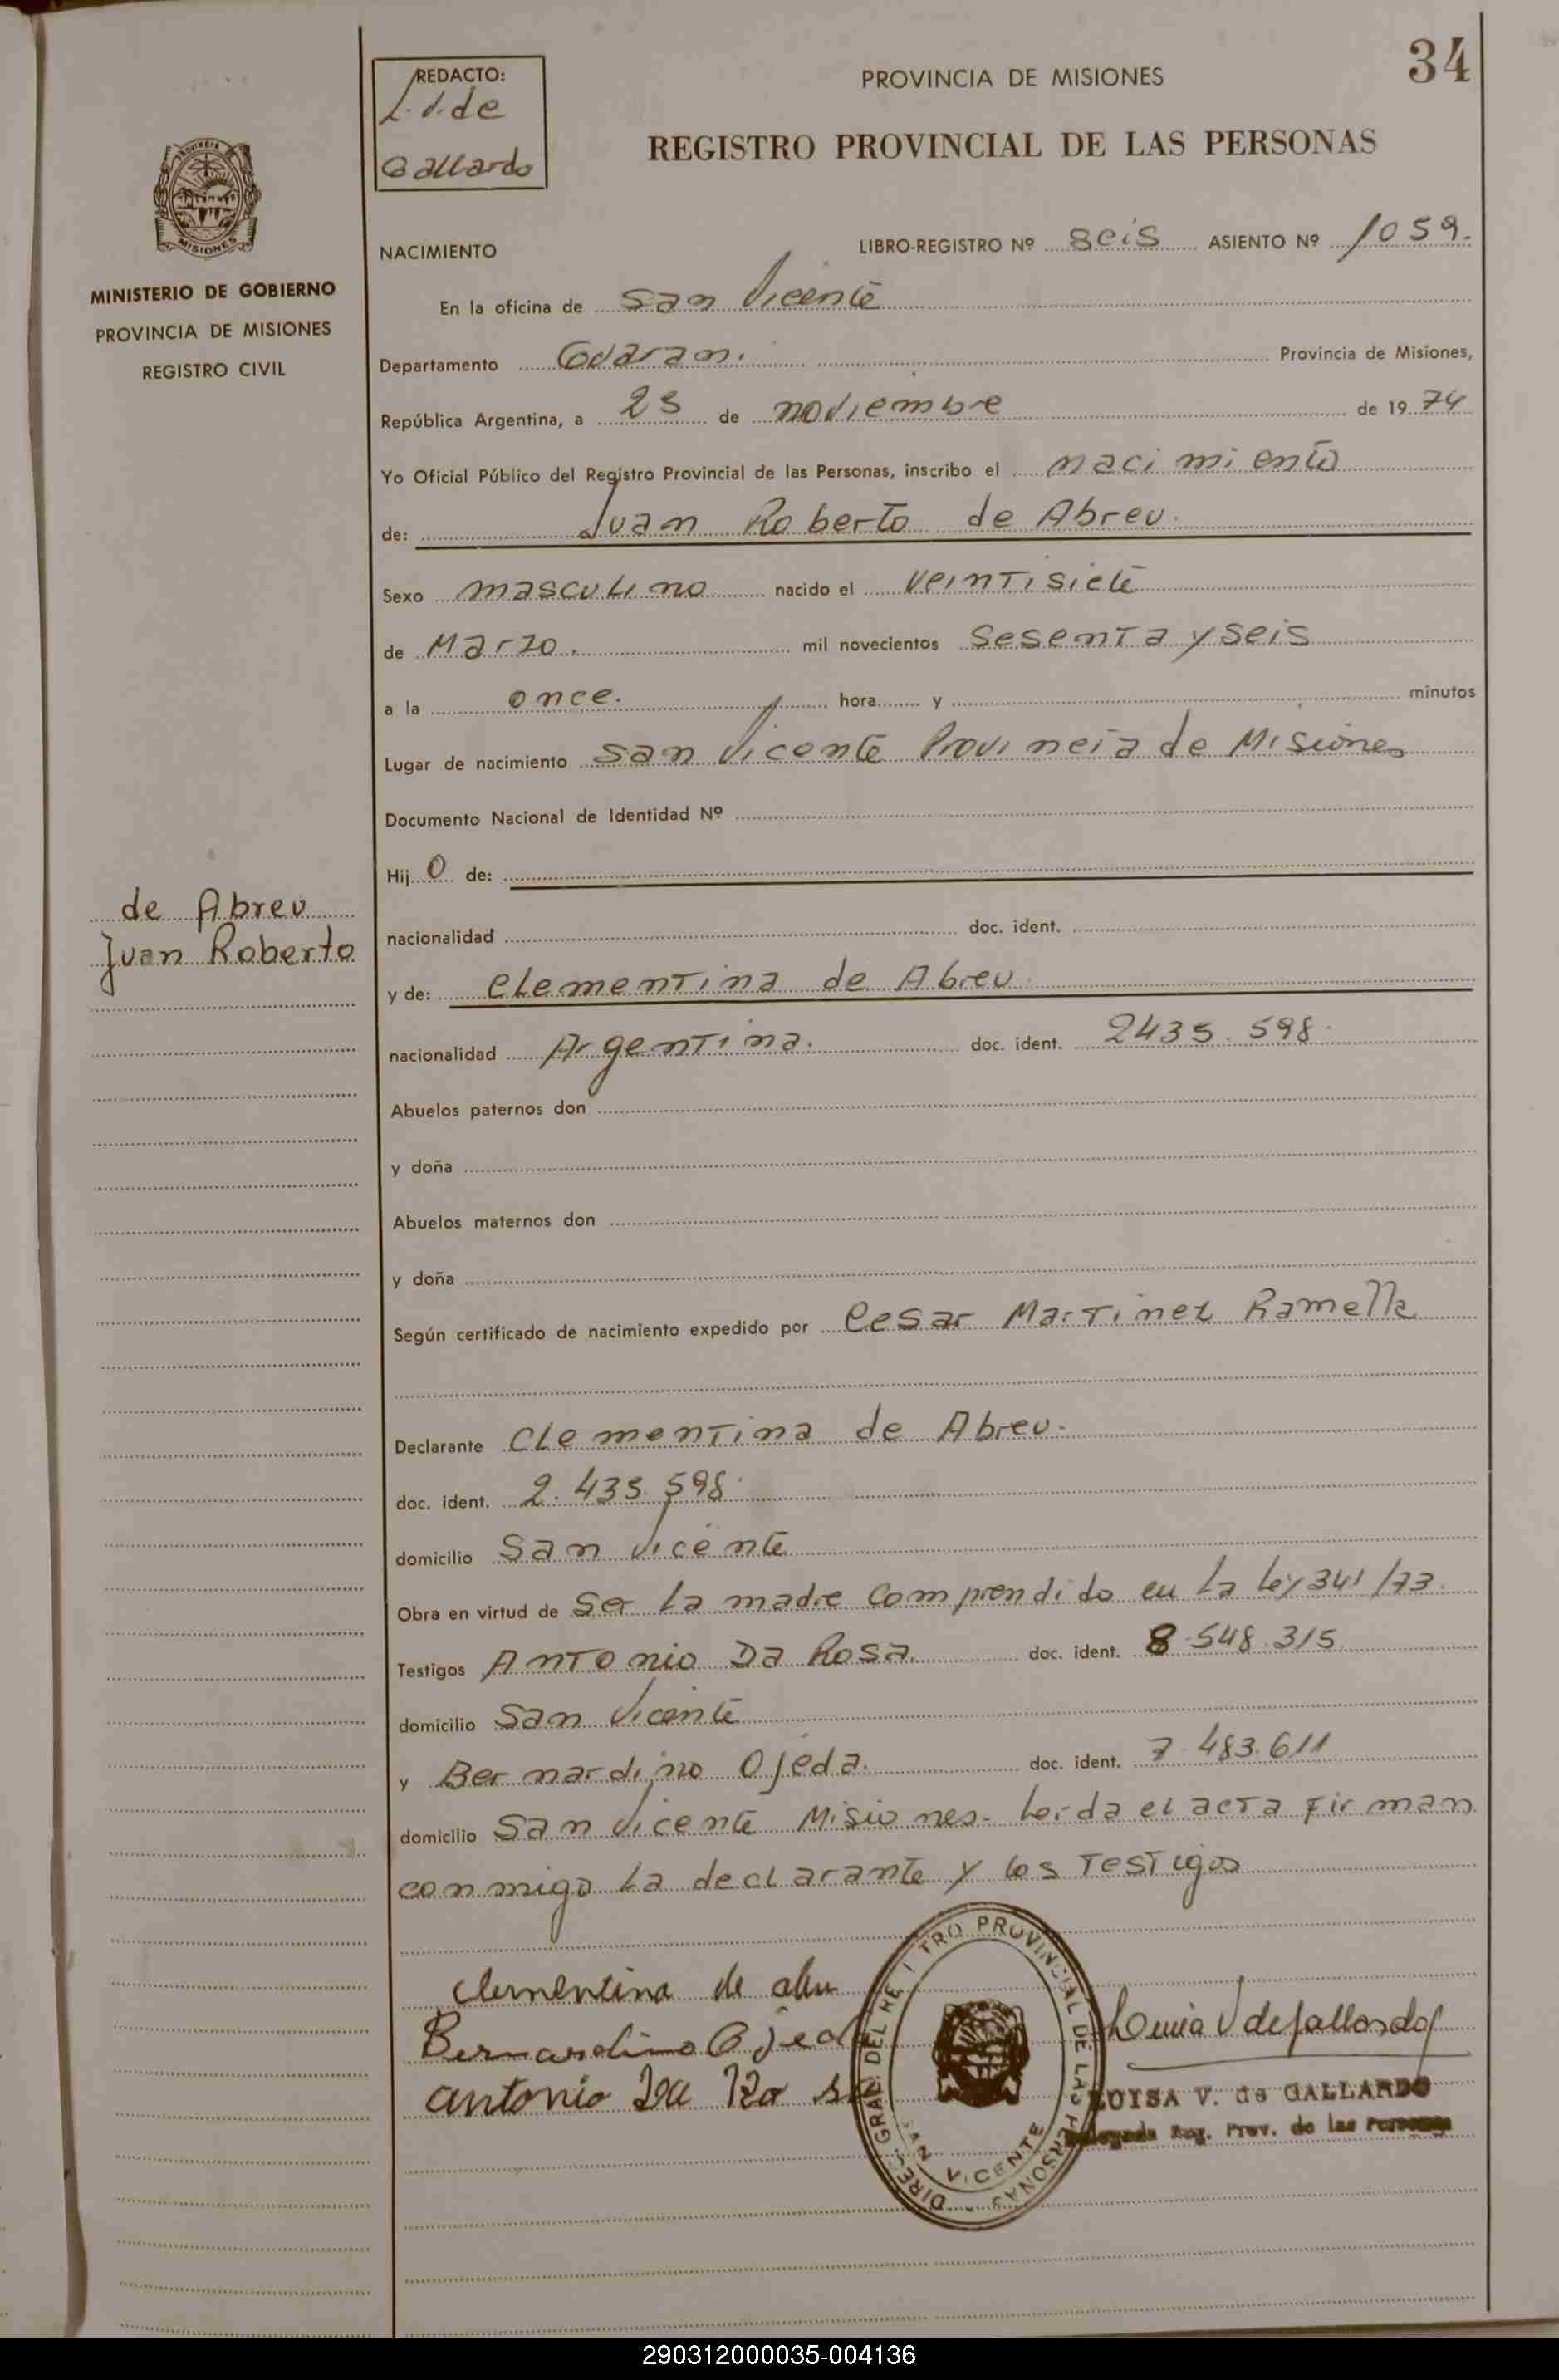 34
REDACTO:
L. V. de
Gallardo
PROVINCIA DE MISIONES
REGISTRO PROVINCIAL DE LAS PERSONAS
MISIONES
MINISTERIO DE GOBIERNO
PROVINCIA DE MISIONES
REGISTRO CIVIL
NACIMIENTO LIBRO-REGISTRO Nº seis ASIENTO Nº 1059.
En la oficina de San Vicente
Departamento Guaraní. Provincia de Misiones,
República Argentina, a 25 de noviembre de 1974
Yo Oficial Público del Registro Provincial de las Personas, inscribo el nacimiento
de: Juan Roberto de Abreu.
Sexo masculino nacido el veintisiete
de Marzo. mil novecientos Sesenta y seis
a la once. hora y minutos
Lugar de nacimiento San Vicente Provincia de Misiones
Documento Nacional de Identidad Nº
Hij o de:
de Abreu
Juan Roberto
nacionalidad doc. ident.
y de: Clementina de Abreu.
nacionalidad Argentina. doc. ident. 2435.598.
Abuelos paternos don
y doña
Abuelos maternos don
y doña
Según certificado de nacimiento expedido por Cesar Martinez Ramella
Declarante Clementina de Abreu.
doc. ident. 2.435.598.
domicilio San Vicente
Obra en virtud de Ser la madre comprendido en la ley 341/73.
Testigos Antonio Da Rosa. doc. ident. 8.548.315
domicilio San Vicente
y Bernardino Ojeda. doc. ident. 7.483.611
domicilio San Vicente Misiones- Leida el acta firman
conmigo la declarante y los testigos
clementina de
Bernardino Ojeda
antonio Da Ro sa
DIREC. GRAL. DEL REGISTRO PROVINCIAL DE LAS PERSONAS
SAN VICENTE
Luisa V de Gallardo
LUISA V. de GALLARDO
Delegada Reg. Prov. de las Personas
290312000035-004136